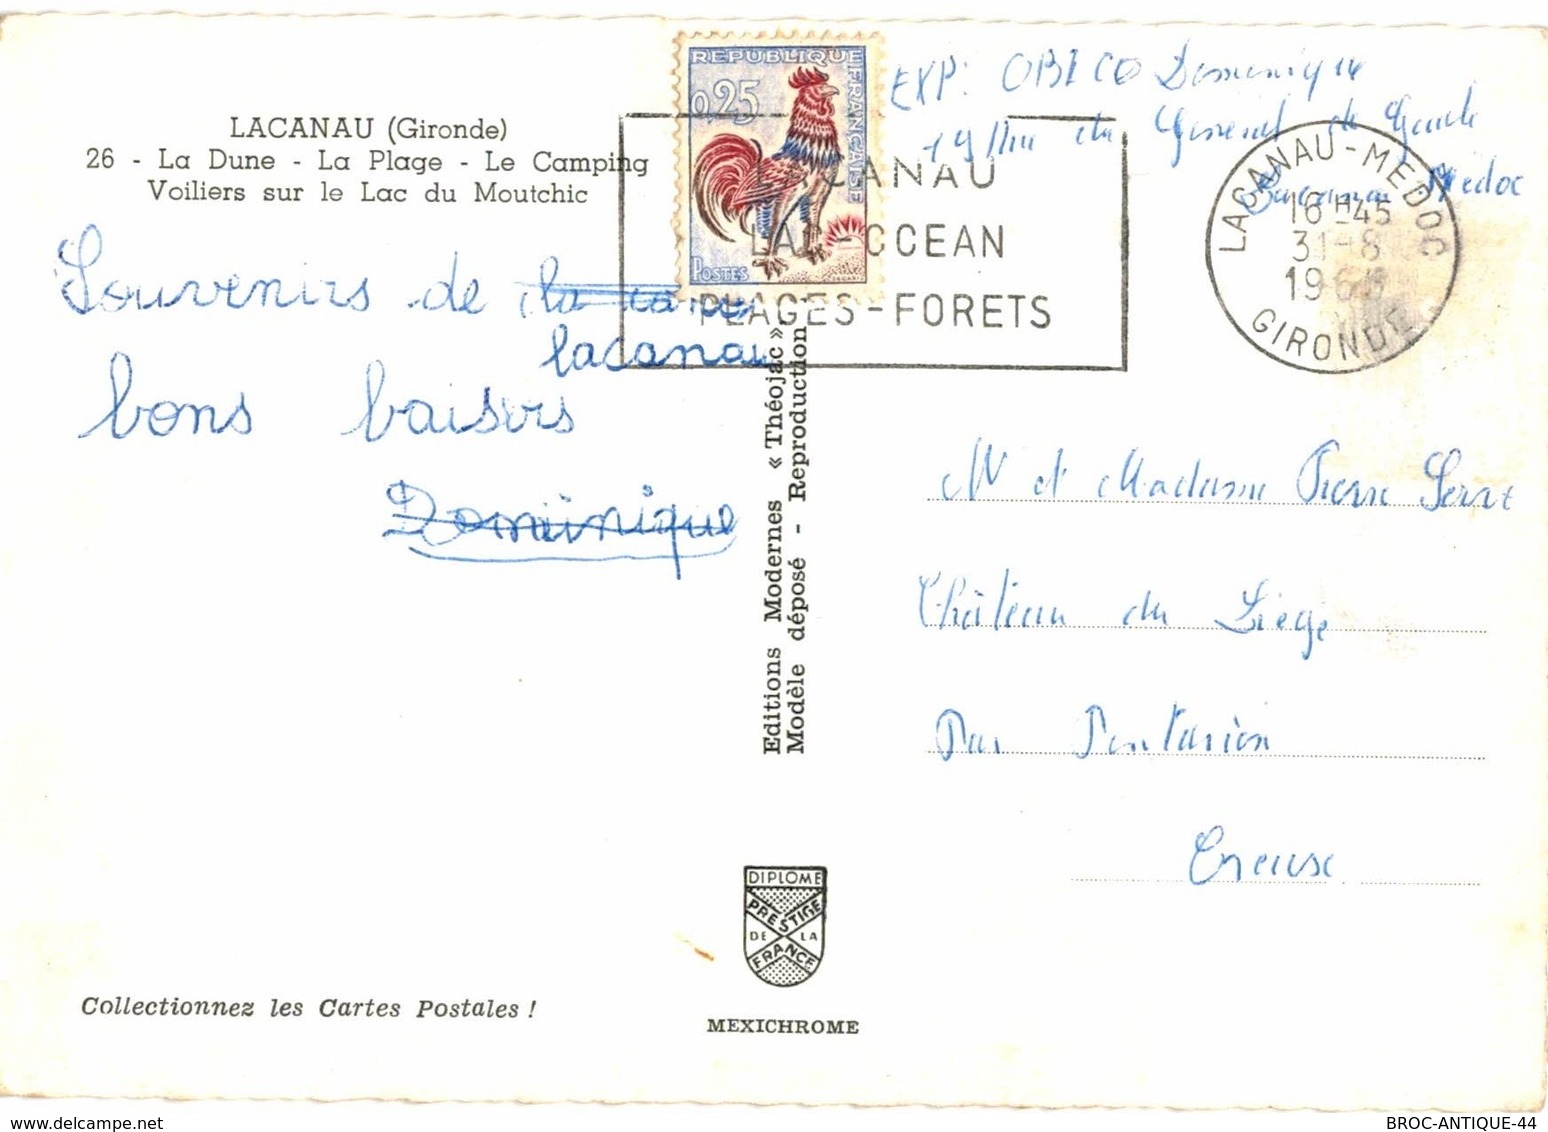 LACANAU (Gironde)
26 - La Dune - La Plage - Le Camping
Voiliers sur le Lac du Moutchic
REPUBLIQUE FRANÇAISE
0,25
POSTES
LACANAU
LAC-OCEAN
PLAGES-FORETS
EXP: OBICO Dominique
du General de Gaule
Medoc
LACANAU-MEDOC
16H45
31-8
GIRONDE
Souvenirs de
lacanau
bons baisers
Dominique
Editions Modernes « Théojac »
Modèle déposé - Reproduction
Mr et Madame Pierre Serre
Château du Liège
Par Pontarion
Creuse
DIPLOME
PRESTIGE
DE LA
FRANCE
MEXICHROME
Collectionnez les Cartes Postales !
BROC-ANTIQUE-44